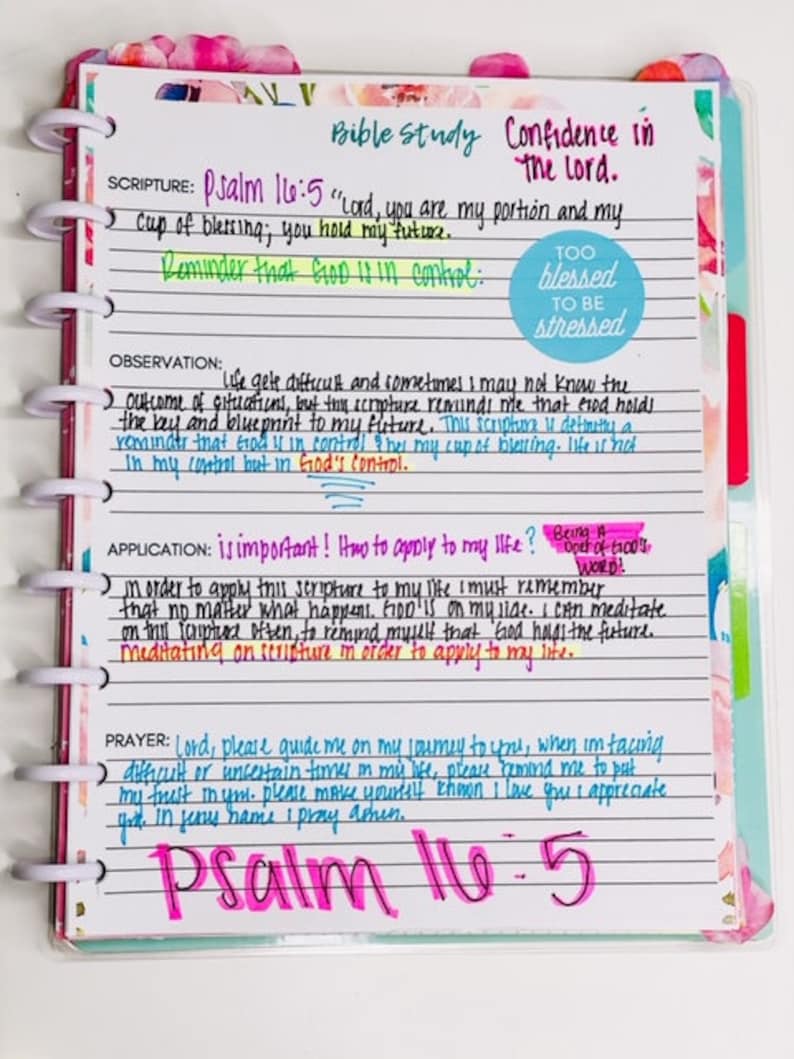 Bible Study Confidence in
the Lord.
SCRIPTURE: Psalm 16:5 "Lord, you are my portion and my
cup of blessing; you hold my future.
Reminder that God is in control:
TOO
blessed
TO BE
stressed
OBSERVATION:
Life gets difficult and sometimes I may not know the
outcome of situations, but this scripture reminds me that God holds
the key and blueprint to my future. This scripture is definitly a
reminder that God is in control & hes my cup of blessing. life is not
in my control but in God's control.
APPLICATION: is important! How to apply to my life?
Being A
Doer of GOD'S
WORD!
In order to apply this scripture to my life I must remember
that no matter what happens. GOD is on my side. I can meditate
on this scripture often, to remind myself that God holds the future.
Meditating on scripture in order to apply to my life.
PRAYER: Lord, please guide me on my journey to you, when im facing
difficult or uncertain times in my life, please remind me to put
my trust in you. please make yourself known I love you I appreciate
you. In Jesus name I pray amen.
Psalm 16:5